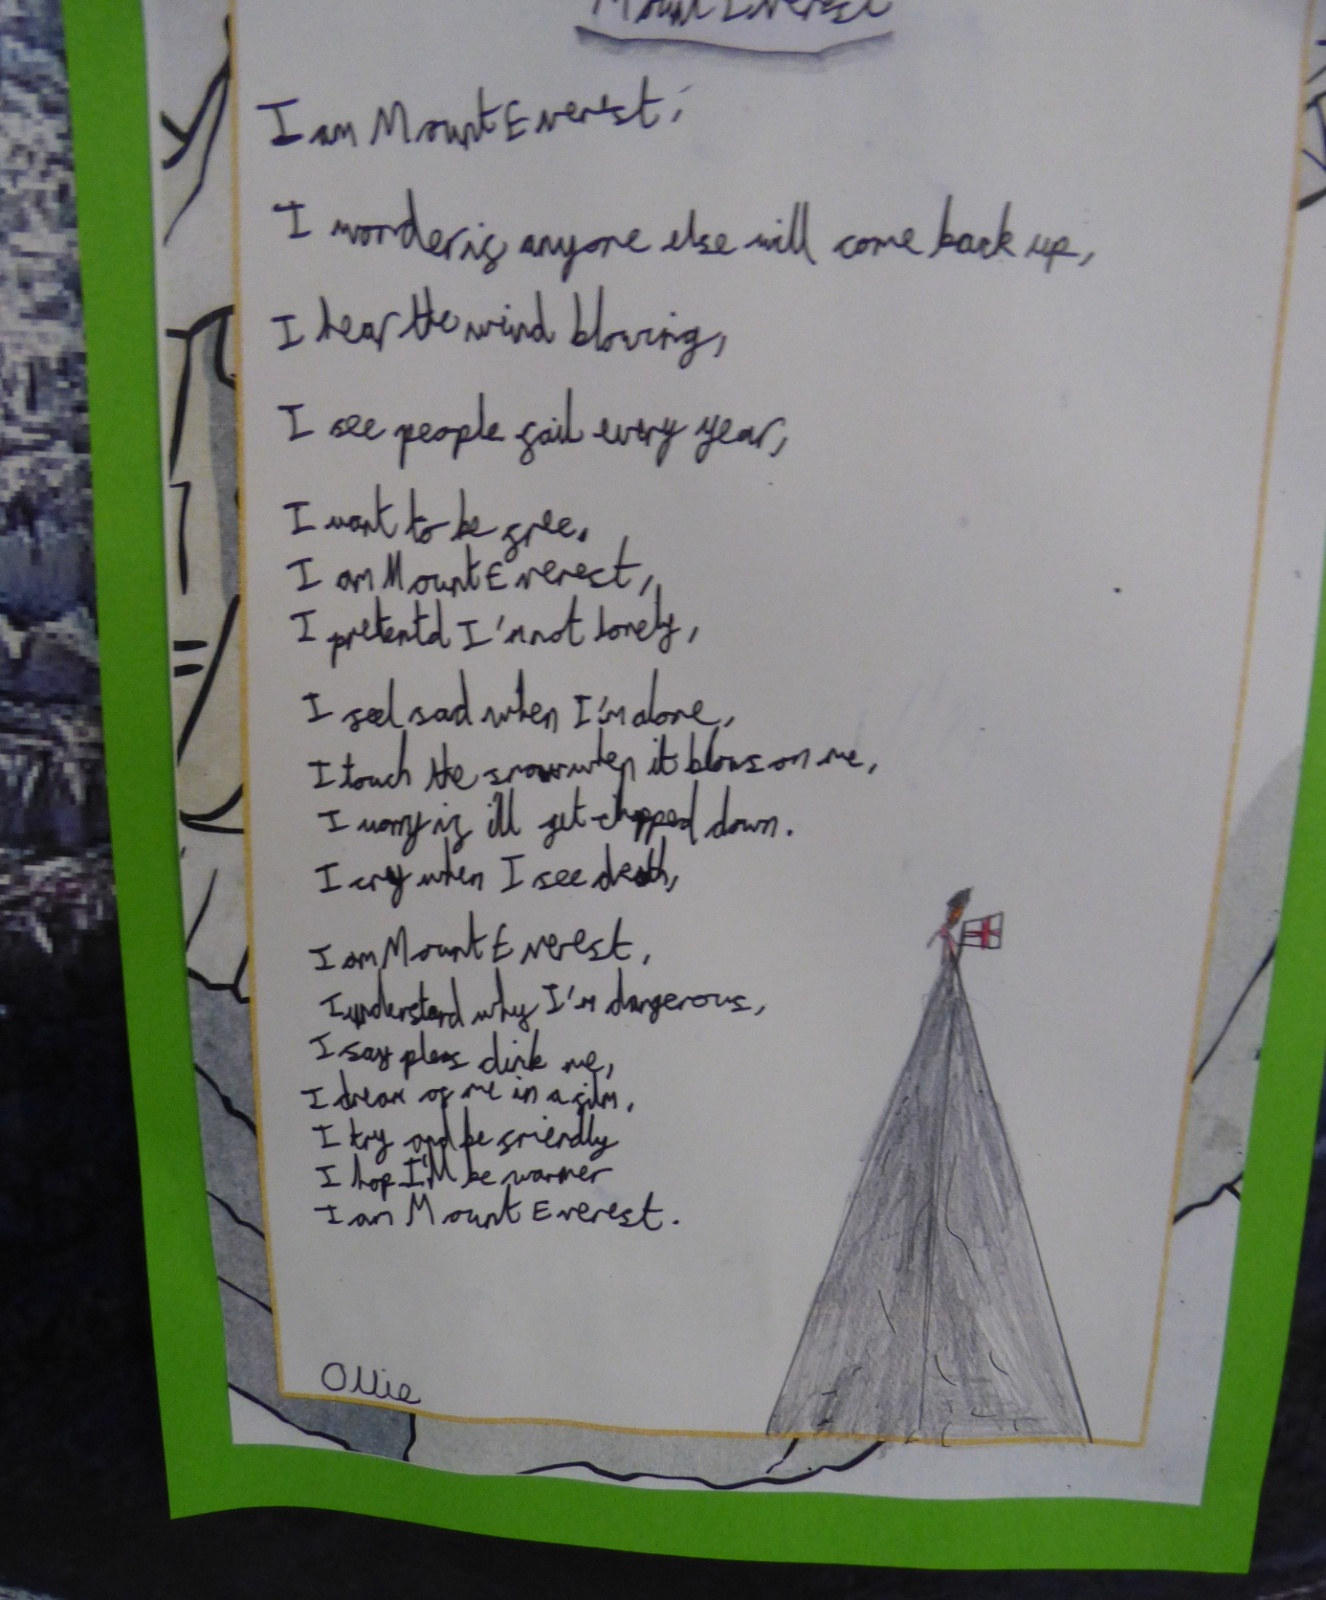 Mount Everest
I am Mount Everest,
I wonder if anyone else will come back up,
I hear the wind blowing,
I see people fail every year,
I want to be free,
I am Mount Everest,
I pretentd I'm not lonely,
I feel sad when I'm alone,
I touch the snow when it blows on me,
I worry if i'll get chopped down.
I cry when I see death,
I am Mount Everest,
I understand why I'm dangerous,
I say pleas clink me,
I dream of me in a film,
I try and be friendly
I hop I'll be warmer
I am Mount Everest.
Ollie